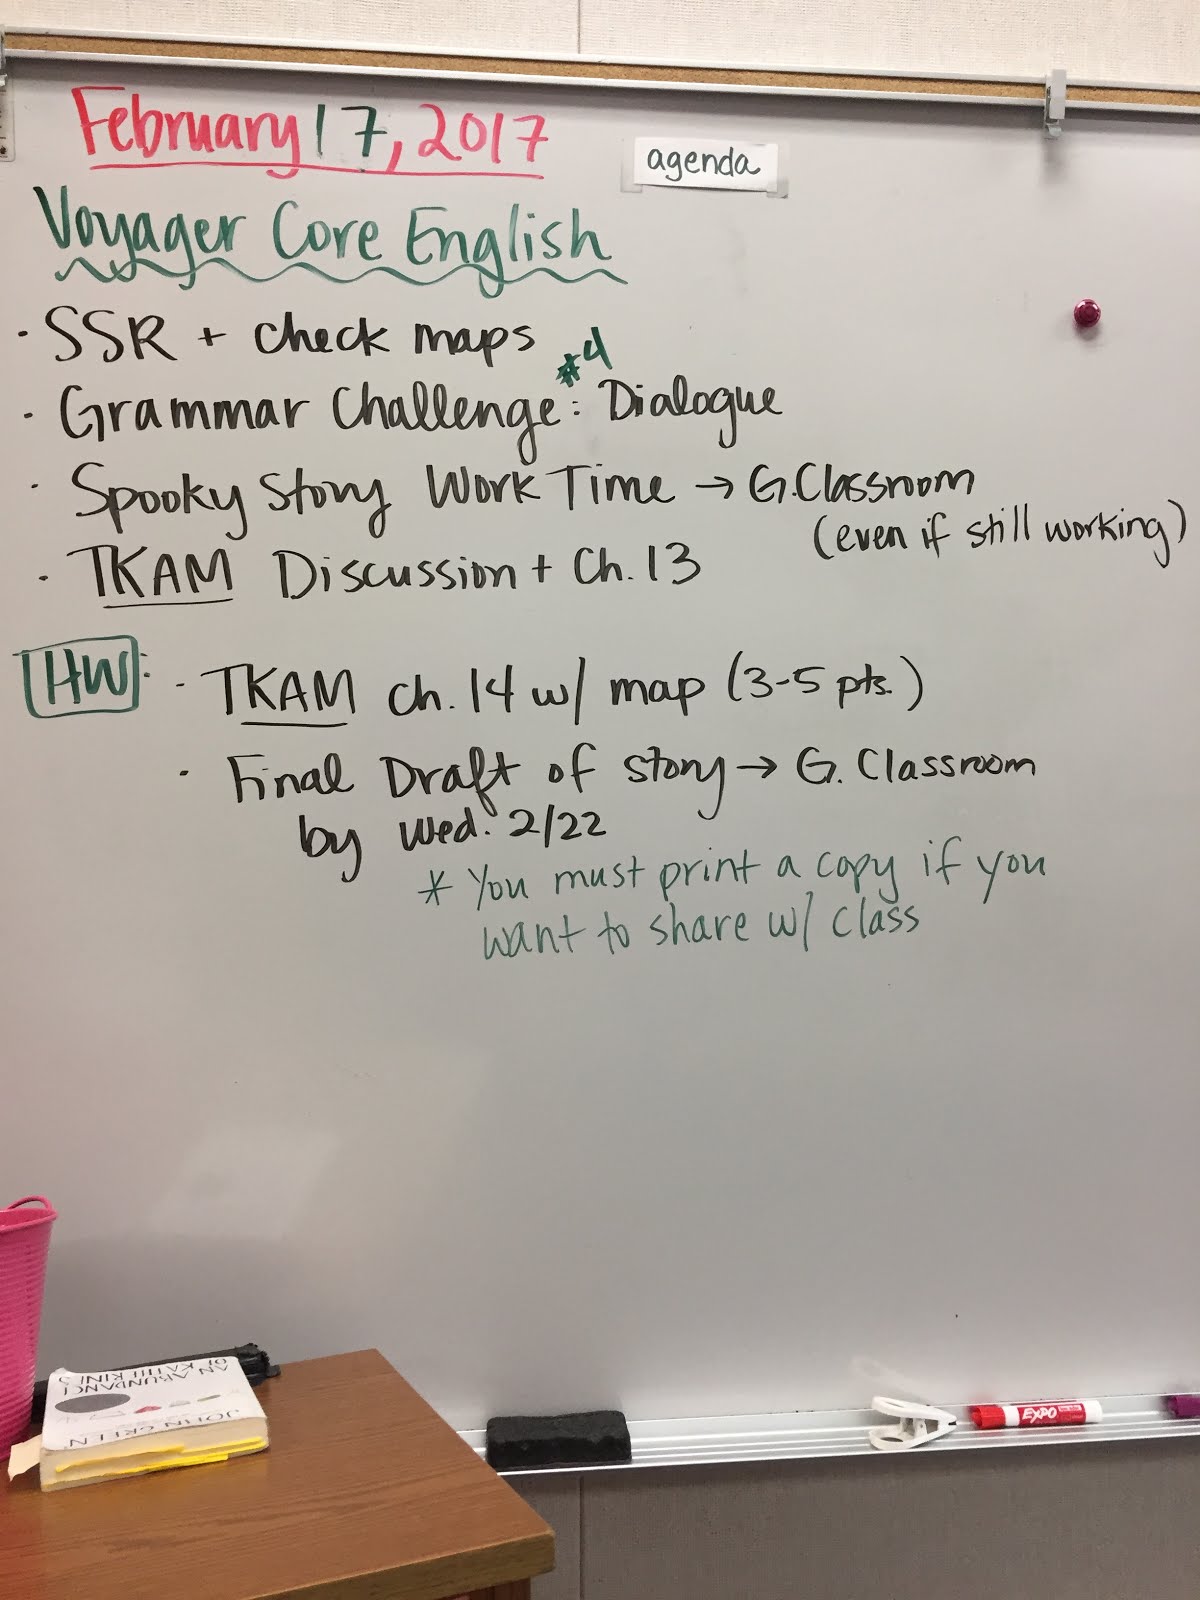 February 17, 2017
agenda
Voyager Core English
· SSR + check maps
· Grammar Challenge #4: Dialogue
· Spooky Story Work Time → G.Classroom
(even if still working)
· TKAM Discussion + Ch. 13
HW:
· TKAM ch. 14 w/ map (3-5 pts.)
· Final Draft of story → G. Classroom
by Wed. 2/22
* You must print a copy if you
want to share w/ class
AN ABUNDANCE
OF KATHERINES
JOHN GREEN
EXPO